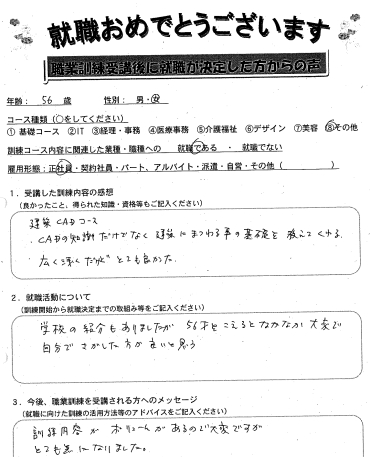 就職おめでとうございます
職業訓練受講後に就職が決定した方からの声
年齢： 56 歳 性別： 男・女
コース種類（○をしてください）
① 基礎コース ②IT ③経理・事務 ④医療事務 ⑤介護福祉 ⑥デザイン ⑦美容 ⑧その他
訓練コース内容に関連した業種・職種への 就職である ・ 就職でない
雇用形態：正社員・契約社員・パート、アルバイト・派遣・自営・その他（ ）
１．受講した訓練内容の感想
（良かったこと、得られた知識・資格等もご記入ください）
建築CADコース
CADの知識だけでなく 建築にまつわる事の基礎を 教えてくれる.
広く深くだけど とても良かった.
２．就職活動について
（訓練開始から就職決定までの取組み等をご記入ください）
学校の紹介もありましたが 56才をこえるとなかなか大変で
自分でさがした方が良いと思う
３．今後、職業訓練を受講される方へのメッセージ
（就職に向けた訓練の活用方法等のアドバイスをご記入ください）
訓練内容が ボリュームがあるので大変ですが
とても為になりました。